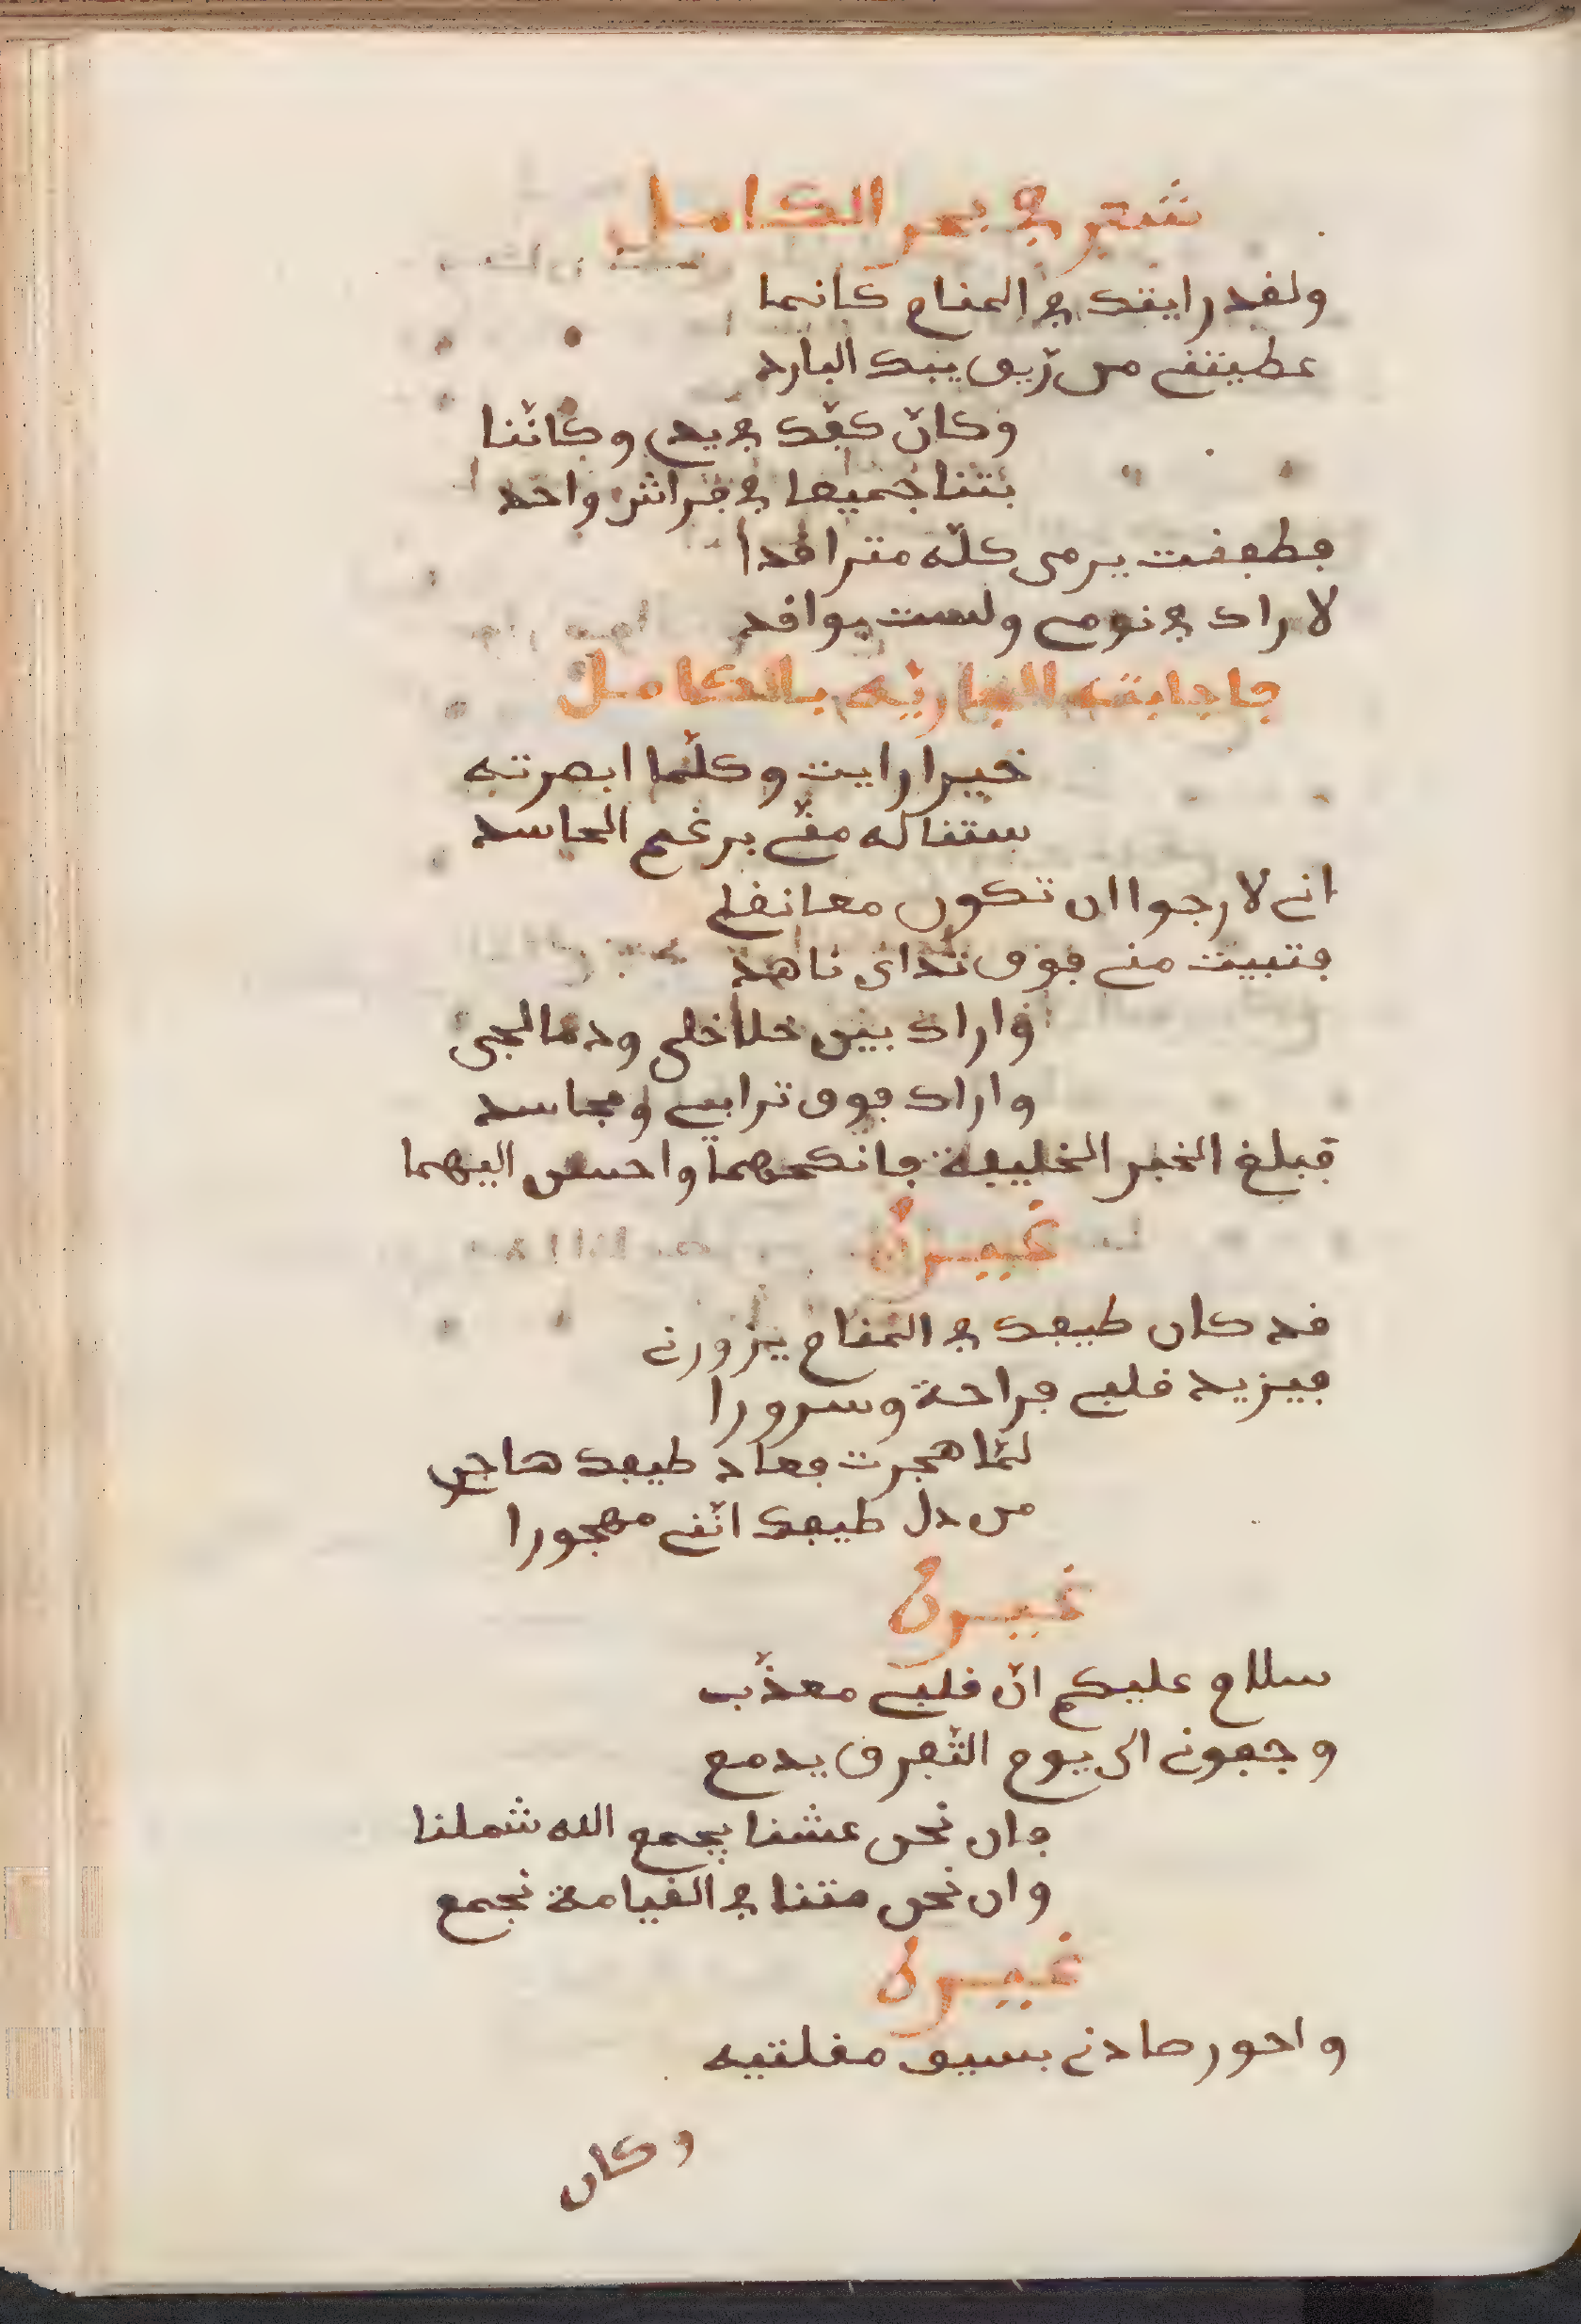 شعر في بحر الكامل
ولقد رايتك في المنام كانما
عطيتني من ريق يبك البارد
وكانّ كفّك في يدي وكانّنا
بتنا جميعا في فراش واحد
فطفقت يومي كلّه متراقدا
لاراك في نومي ولست براقد
فاجابته الجارية بالكامل
خيرا رايت وكلّما ابصرته
ستناله منّي برغم الحاسد
اني لارجوا ان تكون معانقي
فتبيت مني فوق ثداي ناهد
واراك بين خلاخلي ودمالجي
واراك فوق ترايبي ومجاسد
فبلغ الخبر الخليفة فانكحهما واحسن اليهما
غيره
قد كان طيفك في المنام يزورني
فيزيد قلبي فراحة وسرورا
لمّا هجرت فعاد طيفك هاجري
من دل طيفك انّني مهجورا
غيره
سلام عليكم انّ قلبي معذّب
وجفوني الى يوم التّفرق يدمع
فان نحن عشنا يجمع الله شملنا
وان نحن متنا في القيامة نجمع
غيره
واحور صادني بسيف مقلتيه
وكان